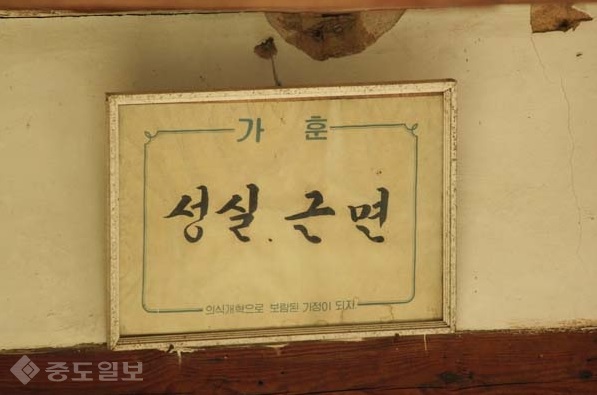 가 훈
성실. 근면
의식개혁으로 보람된 가정이 되자
중도일보